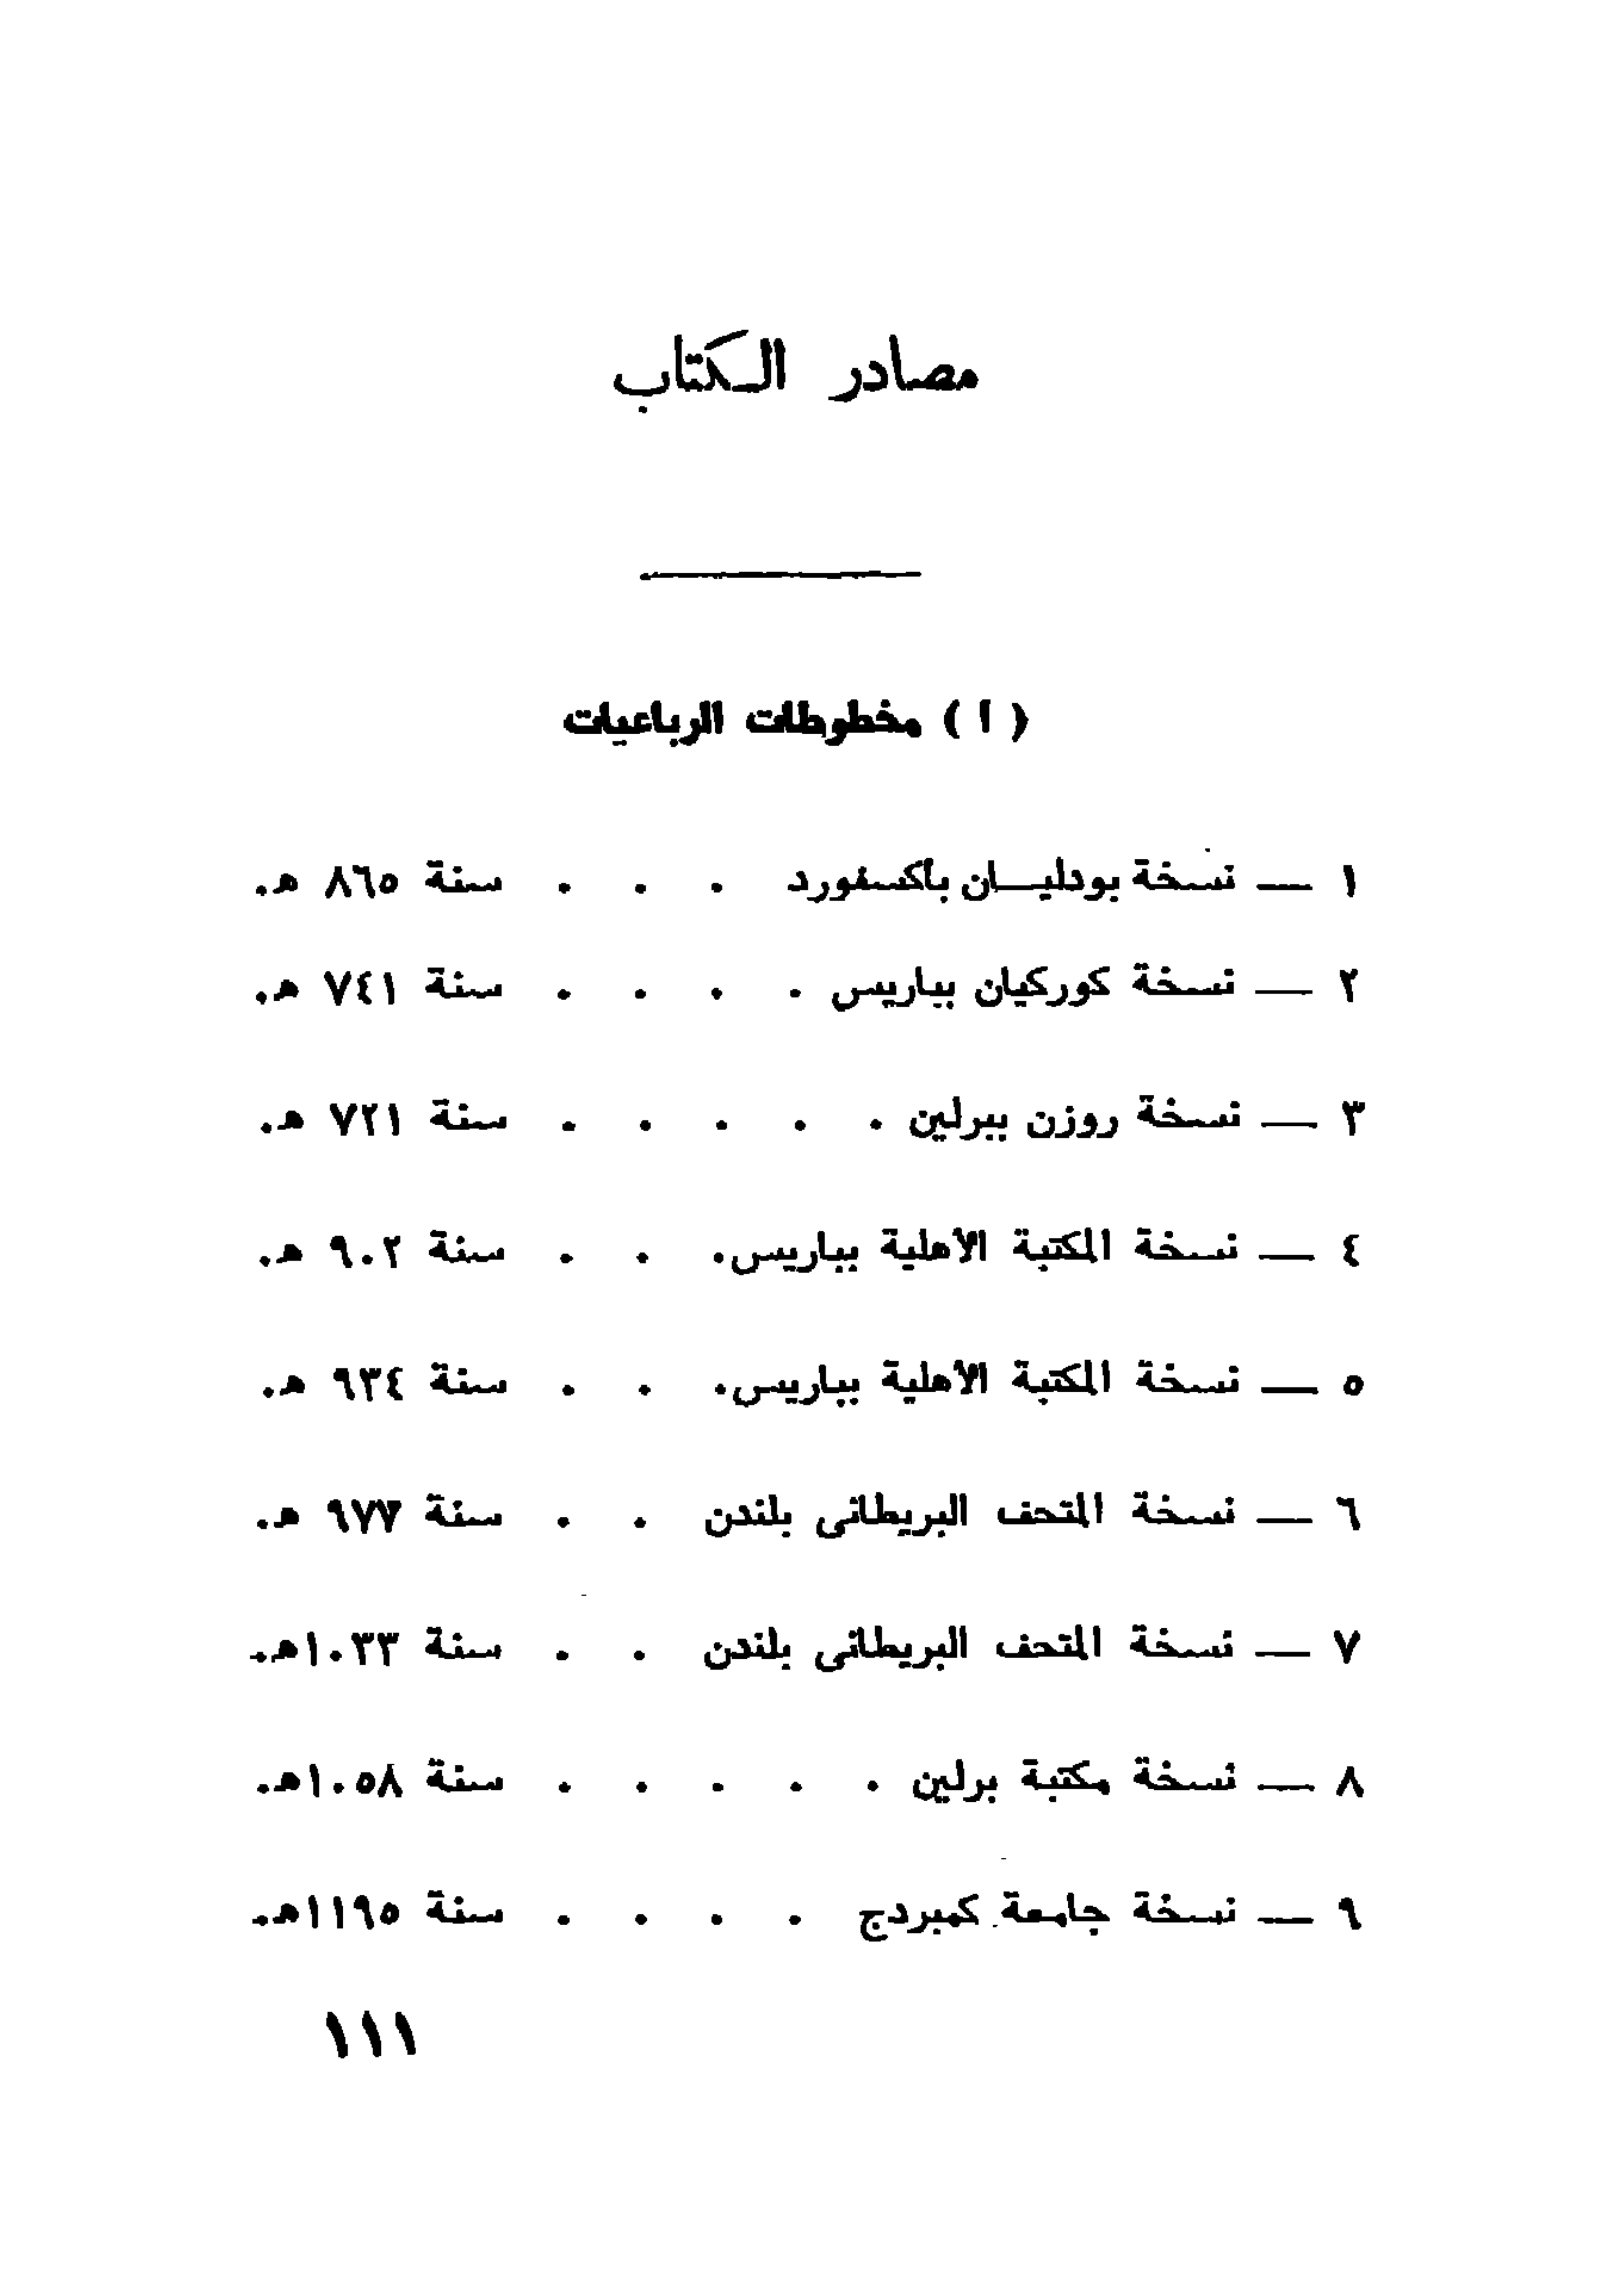 مصادر الكتاب
( ا ) مخطوطات الرباعيات
١ — نسخة بودليان بأكسفورد . . . سنة ٨٦٥ هـ.
٢ — نسخة كوركيان بباريس . . . . سنة ٧٤١ هـ.
٣ — نسخة روزن ببرلين . . . . . سنة ٧٢١ هـ.
٤ — نسخة المكتبة الأهلية بباريس. . . سنة ٩٠٢ هـ.
٥ — نسخة المكتبة الأهلية بباريس. . . سنة ٩٣٤ هـ.
٦ — نسخة المتحف البريطانى بلندن . . سنة ٩٧٧ هـ.
٧ — نسخة المتحف البريطانى بلندن . . سنة ١٠٣٣هـ.
٨ — نسخة مكتبة برلين . . . . . سنة ١٠٥٨هـ.
٩ — نسخة جامعة كمبردج . . . . سنة ١١٩٥هـ.
١١١